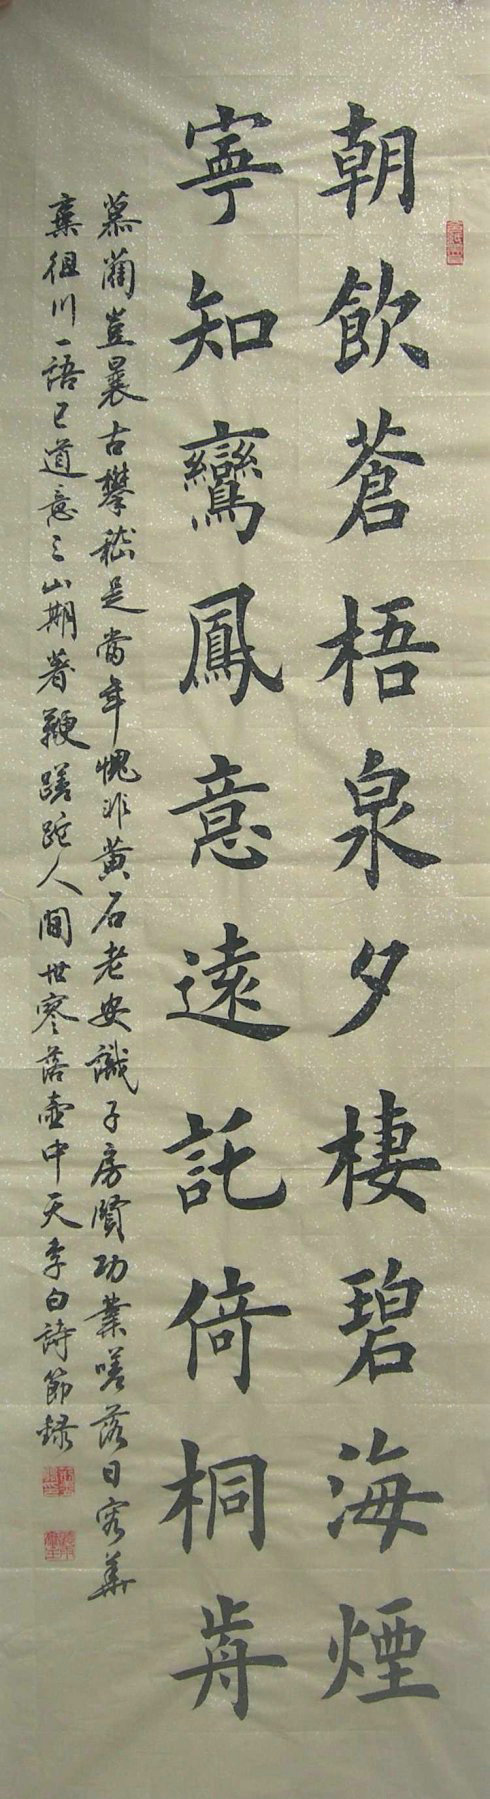 朝飲蒼梧泉夕棲碧海煙
寧知鸞鳳意遠託倚桐歬
慕藺豈曩古攀嵇是當年愧非黄石老安識子房賢功業嗟落日容華
棄徂川一語已道意三山期著鞭蹉跎人間世寥落壺中天李白詩節録